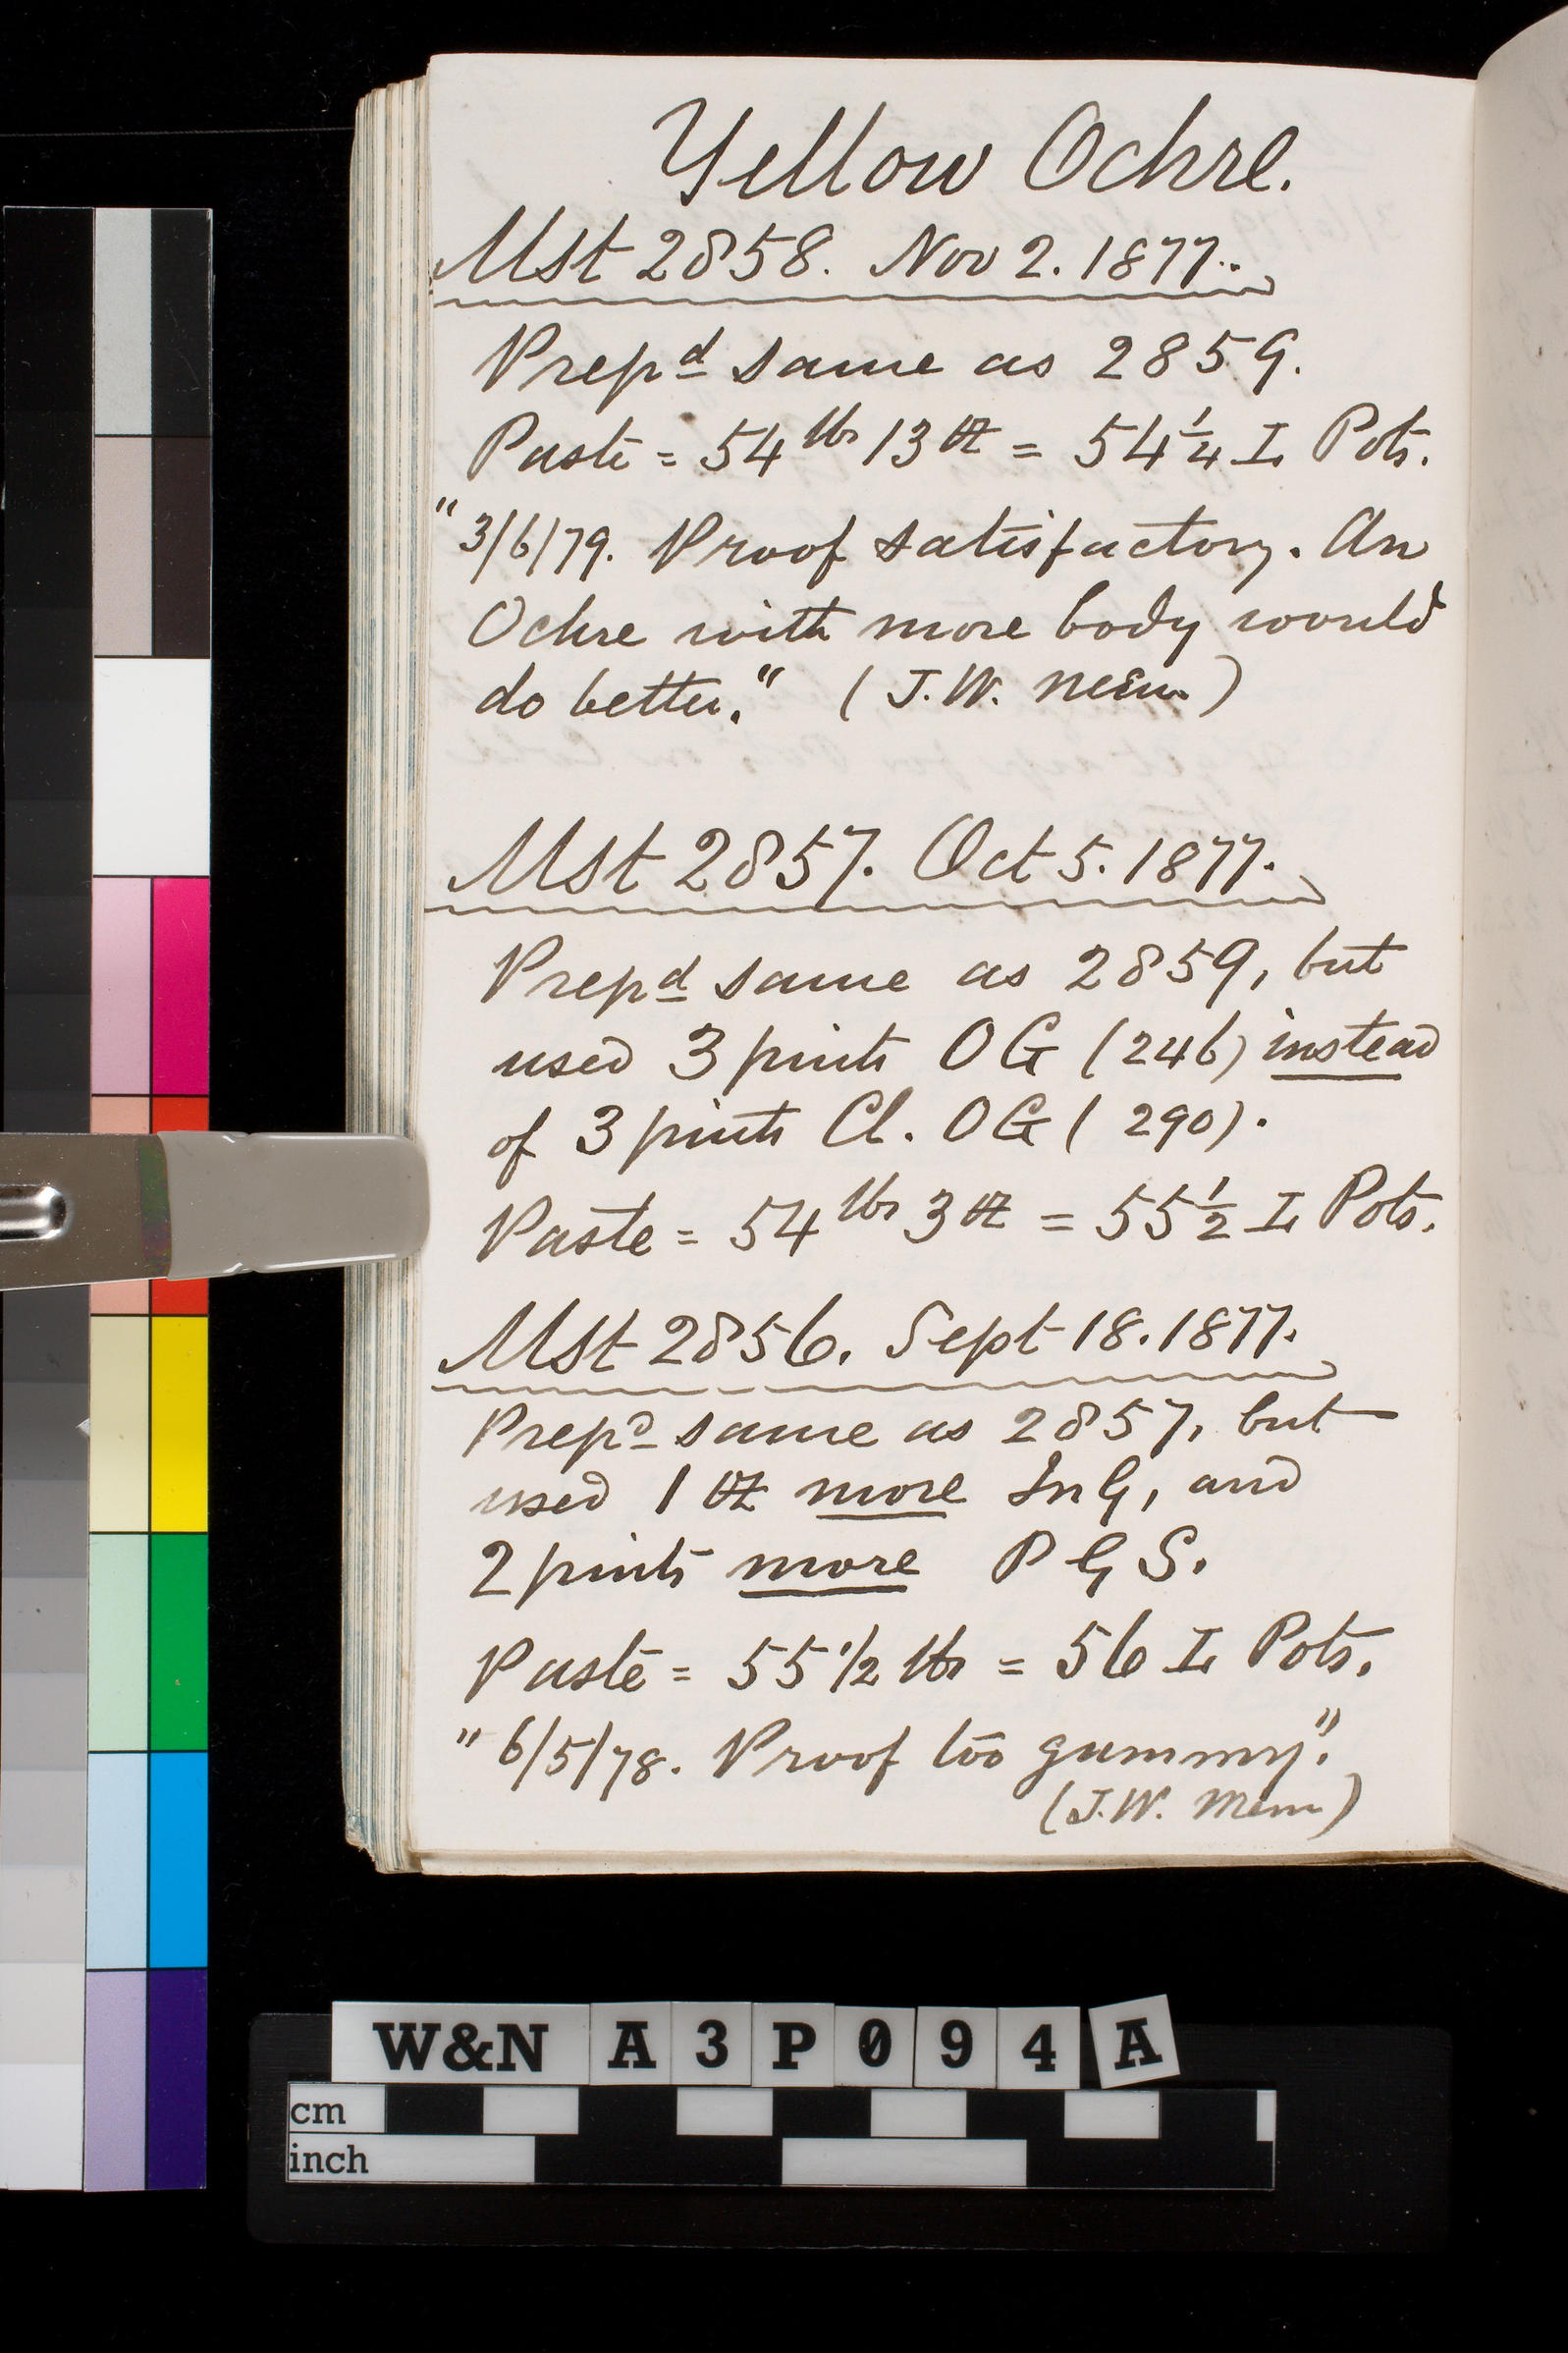 Yellow Ochre.
Mst 2858. Nov 2. 1877.
Prepd same as 2859.
Paste = 54 lbs 13 oz = 54 1/4 I Pots.
"3/6/79. Proof satisfactory. An
Ochre with more body would
do better." (J.W. Mem)
Mst 2857. Oct 5. 1877.
Prepd same as 2859, but
used 3 pints OG (246) instead
of 3 pints Cl. OG (290).
Paste = 54 lbs 3 oz = 55 1/2 I Pots.
Mst 2856. Sept 18. 1877.
Prepd same as 2857, but
used 1 oz more InG, and
2 pints more PGS.
Paste = 55 1/2 lbs = 56 I Pots.
"6/5/78. Proof too gummy".
(J.W. Mem)
W&N A3P094A
cm
inch